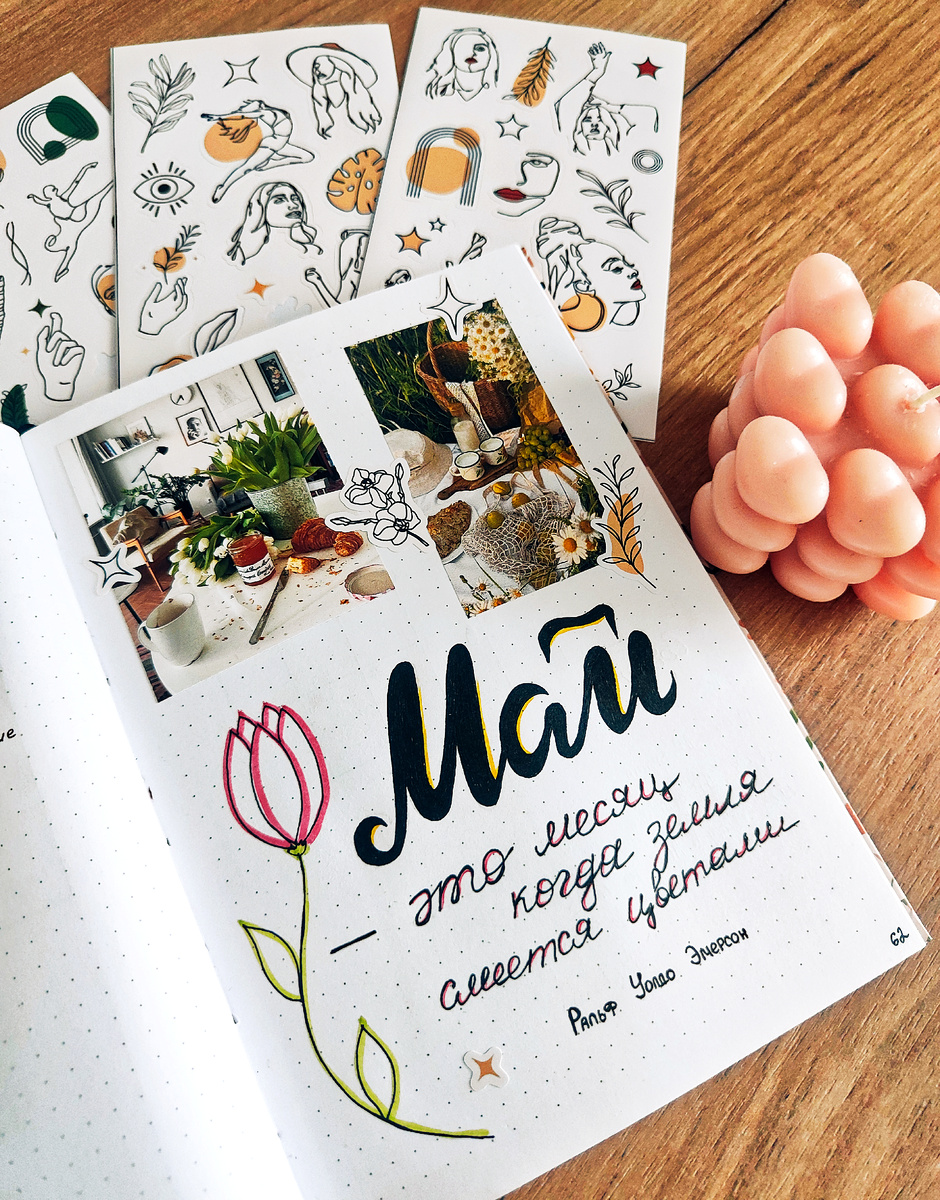 Май
— это месяц
когда земля
смеется цветами
Ральф Уолдо Эмерсон
62